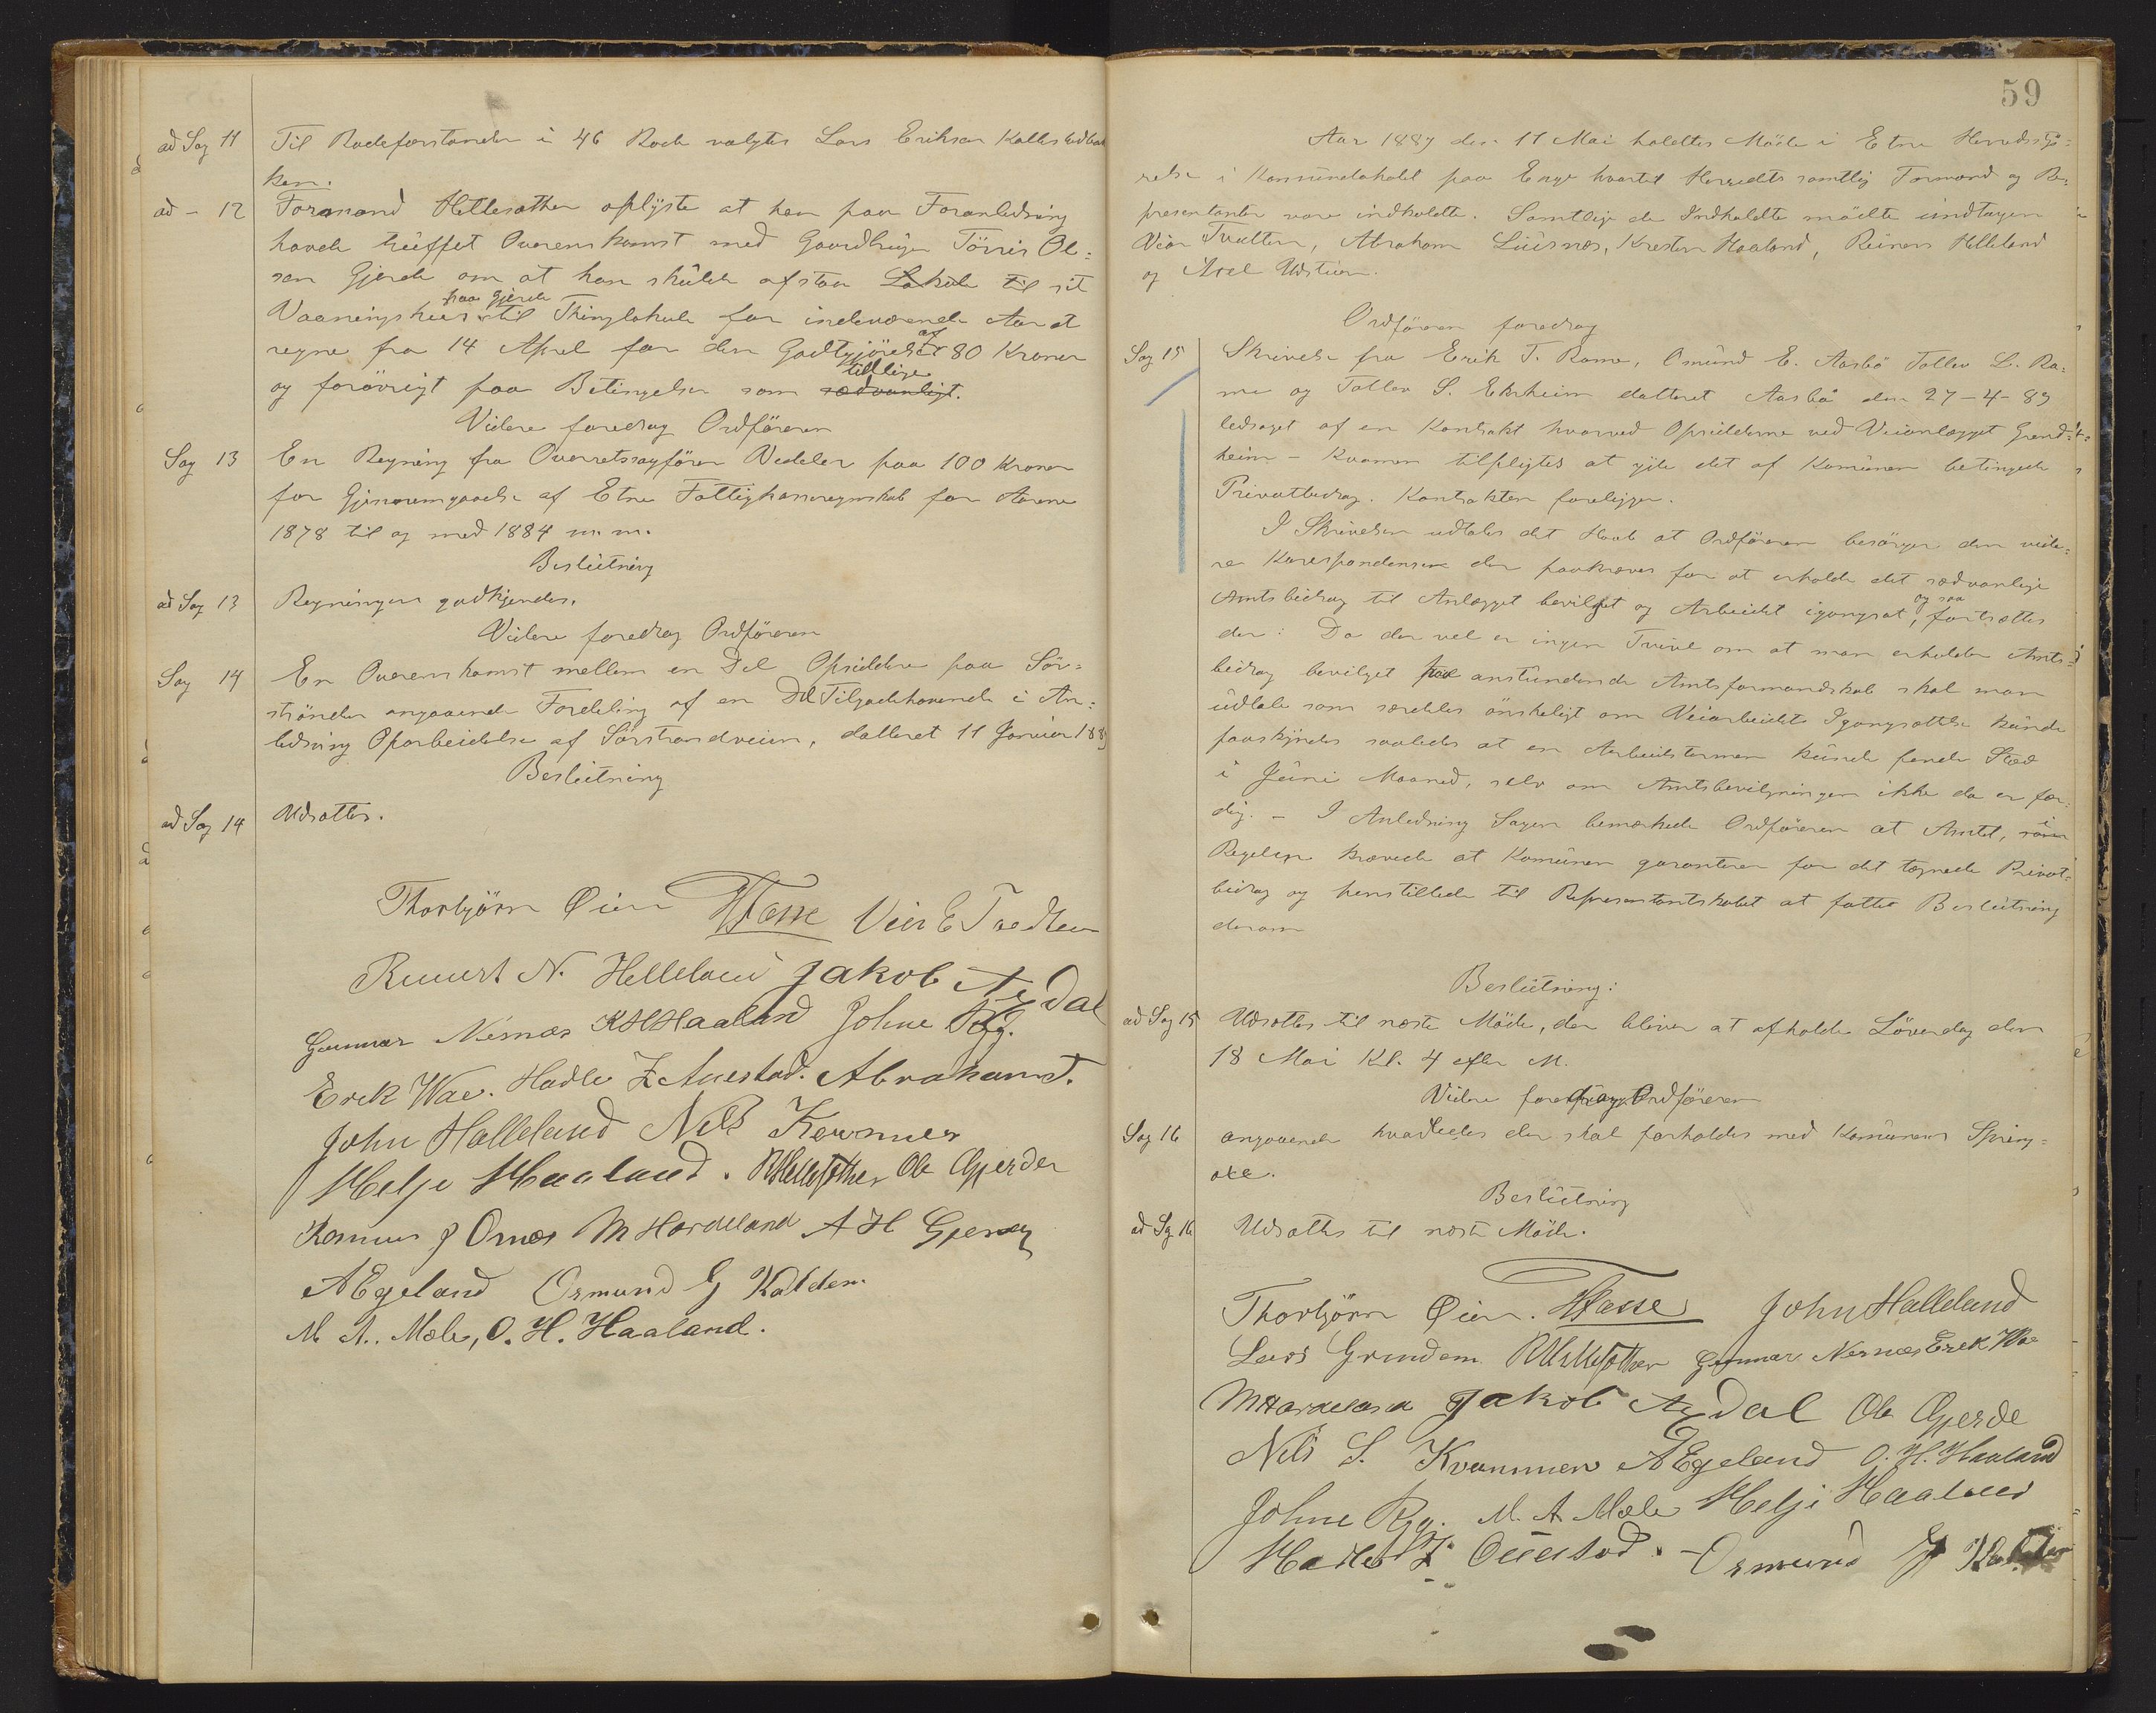 ad Sag 11 Til Rodeforstander i 46 Rode valgtes Lars Eriksen
ken.
ad - 12 Formand Hellesæther oplyste at han paa Foranledning
havde trüffet Overenskomst med Gaardbrüger Törris Ol=
sen Gjerde om at han skülde afstaa Lokale til sit
paa Gjerde
Vaaningshuus til Thinglokale for indeværende Aar at
af
regne fra 14 April for den Godtgjörelse 80 Kroner
tillige
og forövrigt paa Betingelser som sædvanligt.
Videre foredrog Ordföreren
Sag 13 En Regning fra Overretssagförer Vedeler paa 100 Kroner
for Gjennemgaaelse af Etne Fattigkasseregnskab for Aarene
1878 til og med 1884 m. m.
Beslütning
ad Sag 13 Regningen godkjendes.
Videre foredrog Ordföreren
Sag 14 En Overenskomst mellem en Del Opsiddere paa Sör=
stranden angaaende Fordeling af en Del Tilgodehavende i An=
ledning Oparbeidelse af Sörstrandveien, datteret 11 Januar 1889
Beslütning
ad Sag 14 Udsættes.
Thorbjörn Øien HFasse Vier E Tvedten
Reinert N. Helleland Jakob Aa Dal
Gunnar Nernæs KHHaaland Johne Rygg.
Erik Wae. Hadle Z Auestad. Abraham T.
John Halleland Nels Kvammen
Helje Haaland. RHellesæther Ole Gjerde
Rasmus J Ornes M Hardeland A H Gjerde
AEgeland Osmund G Kalder
M. A. Mæle, O. H. Haaland.
59
Aar 1889 den 11 Mai holdtes Möde i Etne Herredssty=
relse i Komünelokalet paa Enge hvortil Herredets samtlige Formænd og Re=
presentanter vare indkaldte. Samtlige de Indkaldte mödte undtagen
Vier Tvedten, Abraham Liisnæs, Kresten Haaland, Reinert Helleland
og Axel
Ordföreren foredrog
Sag 15 Skrivelse fra Erik T. Rame, Osmünd E. Aasbö Tollev L. Ra=
me og Tollev S. Ekrheim datteret Aasbö den 27-4-89
ledsaget af en Kontrakt hvorved Opsidderne ved Veianlægget Grind=
heim - Kvamen tilpligtes at yde det af Komünen betingede
Privatbidrag. Kontrakten foreligger.
I Skrivelsen udtales det Haab at Ordföreren besörger den vide=
re Korrespondense der paakræves for at erholde det sædvanlige
og saa
Amtsbidrag til Anlægget bevilget og Arbeidet igangsat, fortsættes
der: Da der vel er ingen Tvivl om at man erholder Amts=
bidrag bevilget paa anstundende Amtsformandskab skal man
üdtale som særdeles önskeligt om Veiarbeidets Igangsættelse künde
paaskyndes saaledes at en Arbeidstermin künde finde Sted
i Jüni Maaned, selv om Amtsbevilgningen ikke da er fær=
dig. - I Anledning Sagen bemærkede Ordföreren at Amtet, i
Regelen krævede at Komünen garanterer for det tegnede Privat=
bidrag og henstillede til Representantskabet at fatte Beslütning
derom
Beslütning:
ad Sag 15 Udsættes til næste Möde, der bliver at afholde Löverdag den
18 Mai Kl. 4 efter M.
Videre foredrog Ordföreren
Sag 16 angaaende hvorledes der skal forholdes med Komünens Spring=
oxe.
Beslütning
ad Sag 16 Udsættes til næste Möde.
Thorbjörn Øien. HFasse John Halleland
Lars Grindem RHellesæther Gunnar Nernæs Erik Wae
MHardeland Jakob Aa Dal Ole Gjerde
Nils S. Kvammen AEgeland O. H. Haaland
Johne Rygg. M. A. Mæle Helje Haaland
Hadle Z Auestad. Osmund G